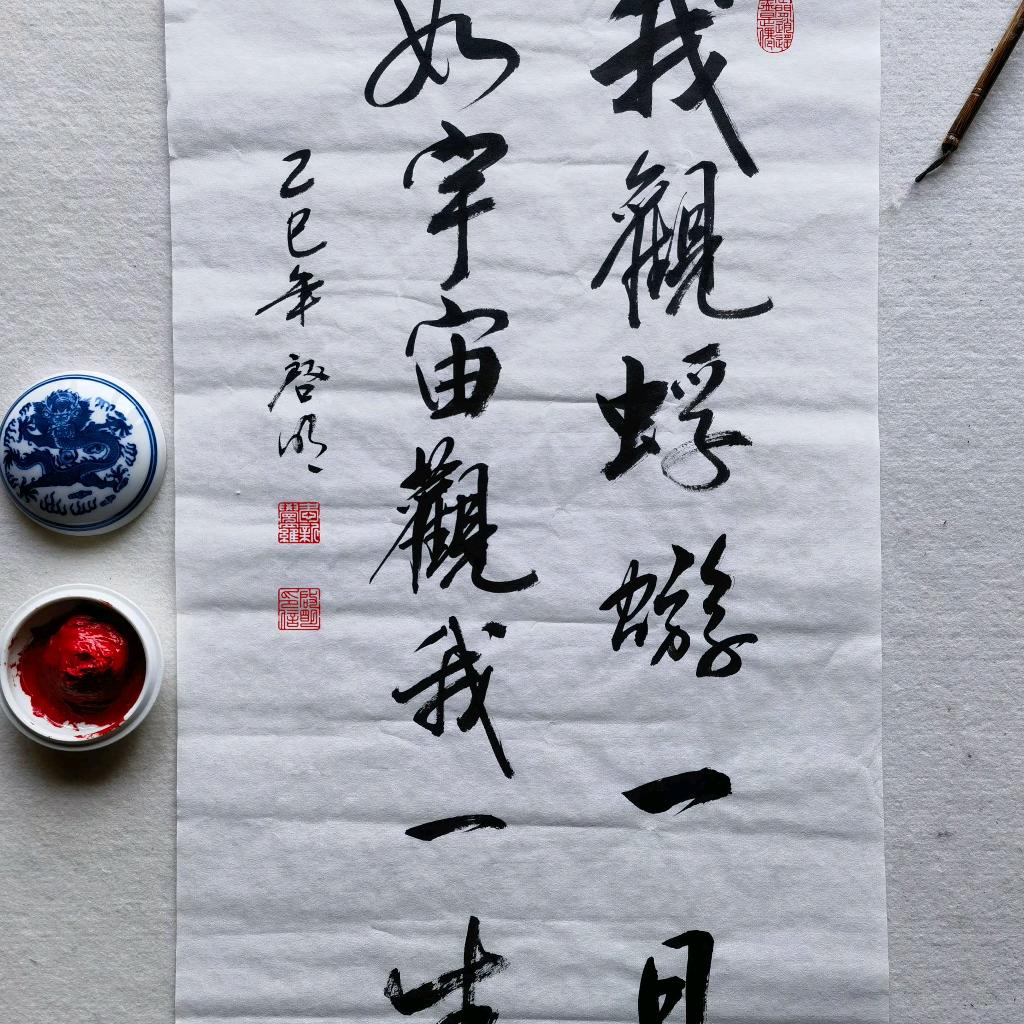 我觀蜉蝣一日
如宇宙觀我一生
乙巳年 啓明